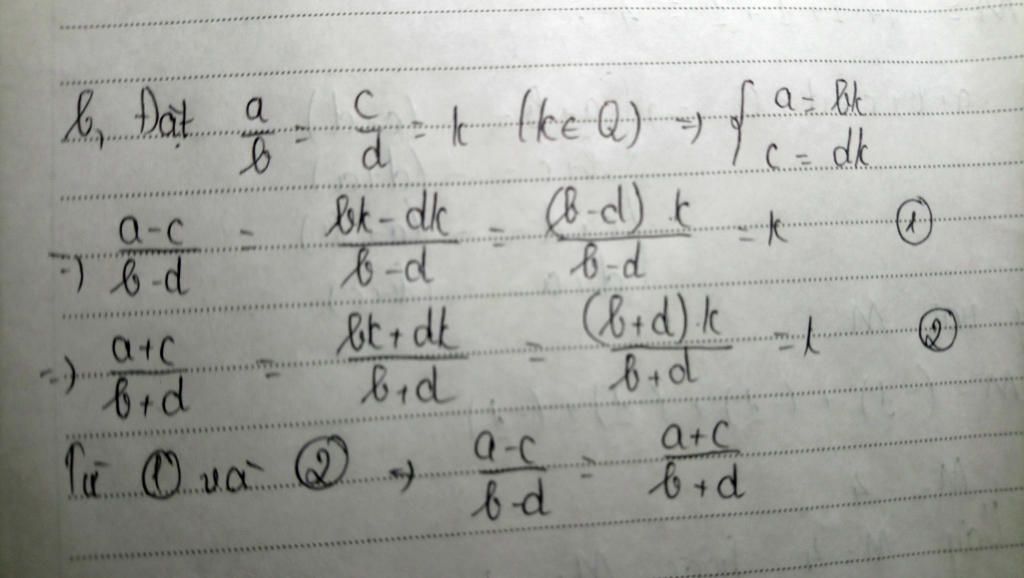 b, Đặt a/b = c/d = k (k ∈ Q) => { a = bk
c = dk
=> a-c/b-d = bk-dk/b-d = (b-d).k/b-d = k ①
=> a+c/b+d = bk+dk/b+d = (b+d).k/b+d = k ②
Từ ① và ② => a-c/b-d = a+c/b+d